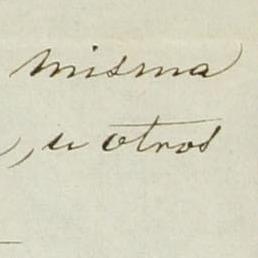 misma
, u otros